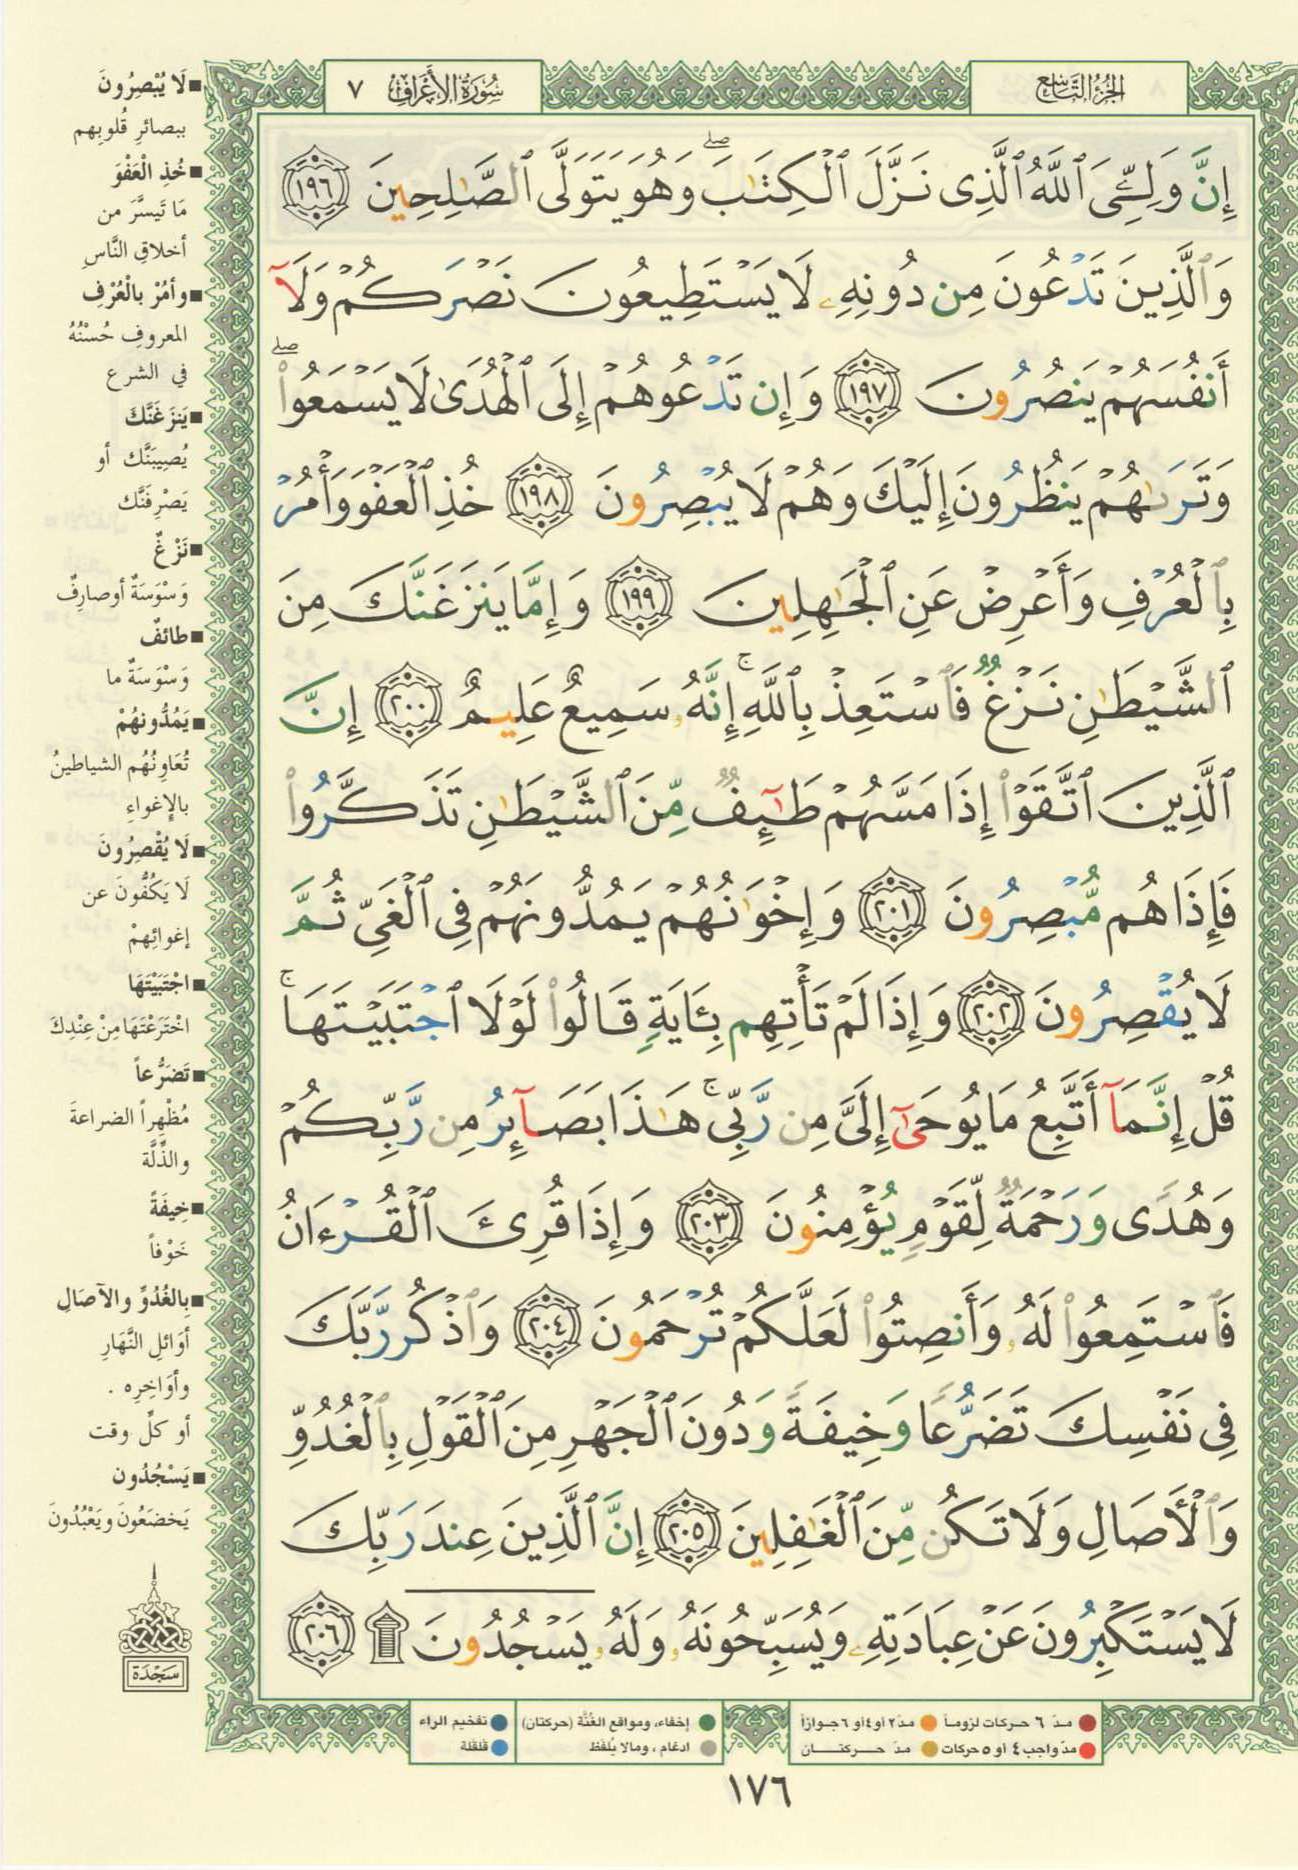 سُورَةُ الأَعْرَاف ٧
الجُزْءُ التَّاسِع
إِنَّ وَلِـِّۧيَ ٱللَّهُ ٱلَّذِى نَزَّلَ ٱلْكِتَٰبَ ۖ وَهُوَ يَتَوَلَّى ٱلصَّٰلِحِينَ ١٩٦
وَٱلَّذِينَ تَدْعُونَ مِن دُونِهِۦ لَا يَسْتَطِيعُونَ نَصْرَكُمْ وَلَآ
أَنفُسَهُمْ يَنصُرُونَ ١٩٧ وَإِن تَدْعُوهُمْ إِلَى ٱلْهُدَىٰ لَا يَسْمَعُوا۟ ۖ
وَتَرَىٰهُمْ يَنظُرُونَ إِلَيْكَ وَهُمْ لَا يُبْصِرُونَ ١٩٨ خُذِ ٱلْعَفْوَ وَأْمُرْ
بِٱلْعُرْفِ وَأَعْرِضْ عَنِ ٱلْجَٰهِلِينَ ١٩٩ وَإِمَّا يَنزَغَنَّكَ مِنَ
ٱلشَّيْطَٰنِ نَزْغٌ فَٱسْتَعِذْ بِٱللَّهِ ۚ إِنَّهُۥ سَمِيعٌ عَلِيمٌ ٢٠٠ إِنَّ
ٱلَّذِينَ ٱتَّقَوْا۟ إِذَا مَسَّهُمْ طَٰٓئِفٌ مِّنَ ٱلشَّيْطَٰنِ تَذَكَّرُوا۟
فَإِذَا هُم مُّبْصِرُونَ ٢٠١ وَإِخْوَٰنُهُمْ يَمُدُّونَهُمْ فِى ٱلْغَىِّ ثُمَّ
لَا يُقْصِرُونَ ٢٠٢ وَإِذَا لَمْ تَأْتِهِم بِـَٔايَةٍ قَالُوا۟ لَوْلَا ٱجْتَبَيْتَهَا ۚ
قُلْ إِنَّمَآ أَتَّبِعُ مَا يُوحَىٰٓ إِلَىَّ مِن رَّبِّى ۚ هَٰذَا بَصَآئِرُ مِن رَّبِّكُمْ
وَهُدًى وَرَحْمَةٌ لِّقَوْمٍ يُؤْمِنُونَ ٢٠٣ وَإِذَا قُرِئَ ٱلْقُرْءَانُ
فَٱسْتَمِعُوا۟ لَهُۥ وَأَنصِتُوا۟ لَعَلَّكُمْ تُرْحَمُونَ ٢٠٤ وَٱذْكُر رَّبَّكَ
فِى نَفْسِكَ تَضَرُّعًا وَخِيفَةً وَدُونَ ٱلْجَهْرِ مِنَ ٱلْقَوْلِ بِٱلْغُدُوِّ
وَٱلْـَٔاصَالِ وَلَا تَكُن مِّنَ ٱلْغَٰفِلِينَ ٢٠٥ إِنَّ ٱلَّذِينَ عِندَ رَبِّكَ
لَا يَسْتَكْبِرُونَ عَنْ عِبَادَتِهِۦ وَيُسَبِّحُونَهُۥ وَلَهُۥ يَسْجُدُونَ ۩ ٢٠٦
■ لَا يُبْصِرُونَ
ببصائرِ قُلوبِهم
■ خُذِ الْعَفْوَ
مَا تَيسَّرَ من
أخلاقِ النَّاسِ
■ وأمُرْ بالْعُرْفِ
المعروفِ حُسْنُهُ
في الشرع
■ يَنزَغَنَّكَ
يُصِيبَنَّك أو
يَصْرِفَنَّك
■ نَزْغٌ
وَسْوَسَةٌ أوصارِفٌ
■ طائفٌ
وَسْوَسَةٌ ما
■ يَمُدُّونهُمْ
تُعَاوِنُهُم الشياطينُ
بالإغواءِ
■ لَا يُقْصِرُونَ
لَا يَكُفُّونَ عن
إغوائِهمْ
■ اجْتَبَيْتَهَا
اخْتَرَعْتَهَا مِنْ عِنْدِكَ
■ تَضَرُّعاً
مُظْهِراً الضراعةَ
والذِّلَّة
■ خِيفَةً
خَوْفاً
■ بِالغُدُوِّ والآصَالِ
أوَائلِ النَّهَارِ
وأوَاخِرِه .
أو كلِّ وقت
■ يَسْجُدُون
يَخضَعُونَ ويَعْبُدُونَ
سَجْدَة
مدّ ٦ حركات لزوماً
مدّ ٢ أو ٤ أو ٦ جوازاً
إخفاء، ومواقع الغُنَّة (حركتان)
تفخيم الراء
مدّ واجب ٤ أو ٥ حركات
مدّ حركتان
ادغام ، ومالا يُلفظ
قلقلة
١٧٦